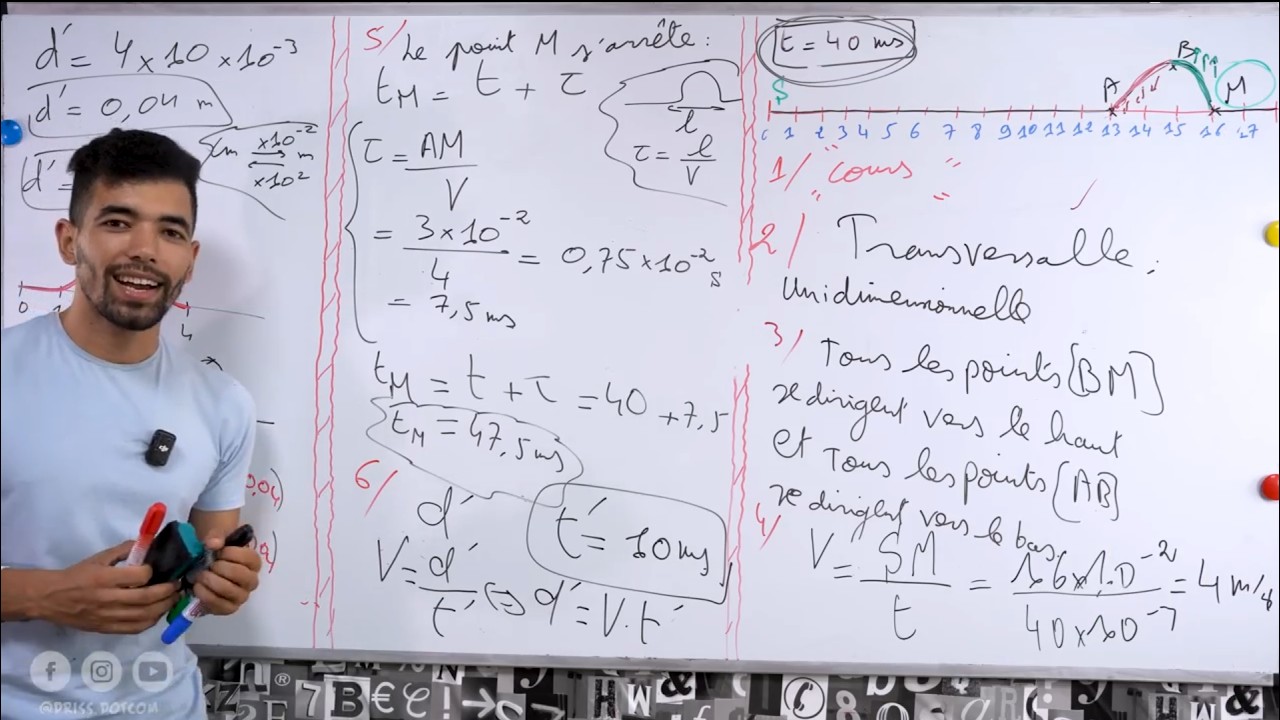 d' = 4 × 10 × 10⁻³
d' = 0,04 m
d' =
cm ×10⁻² m
×10²
0
4
0,04)
5/ Le point M s'arrête :
t_M = t + τ
l
τ = l/V
τ = AM/V
= 3×10⁻²/4 = 0,75×10⁻² s
= 7,5 ms
t_M = t + τ = 40 + 7,5
t_M = 47,5 ms
6/
d'
t' = 10 ms
V = d'/t' ⇔ d' = V.t'
t = 40 ms
S A B M
0 1 2 3 4 5 6 7 8 9 10 11 12 13 14 15 16 17
1/ "cours"
2/ Transversalle.
Unidimensionnelle
3/ Tous les points [BM]
se dirigent vers le haut
et Tous les points [AB]
se dirigent vers le bas
4/ V = SM/t = 16×10⁻²/40×10⁻³ = 4 m/s
@DRISS DOTCOM
® 7 B € ! &